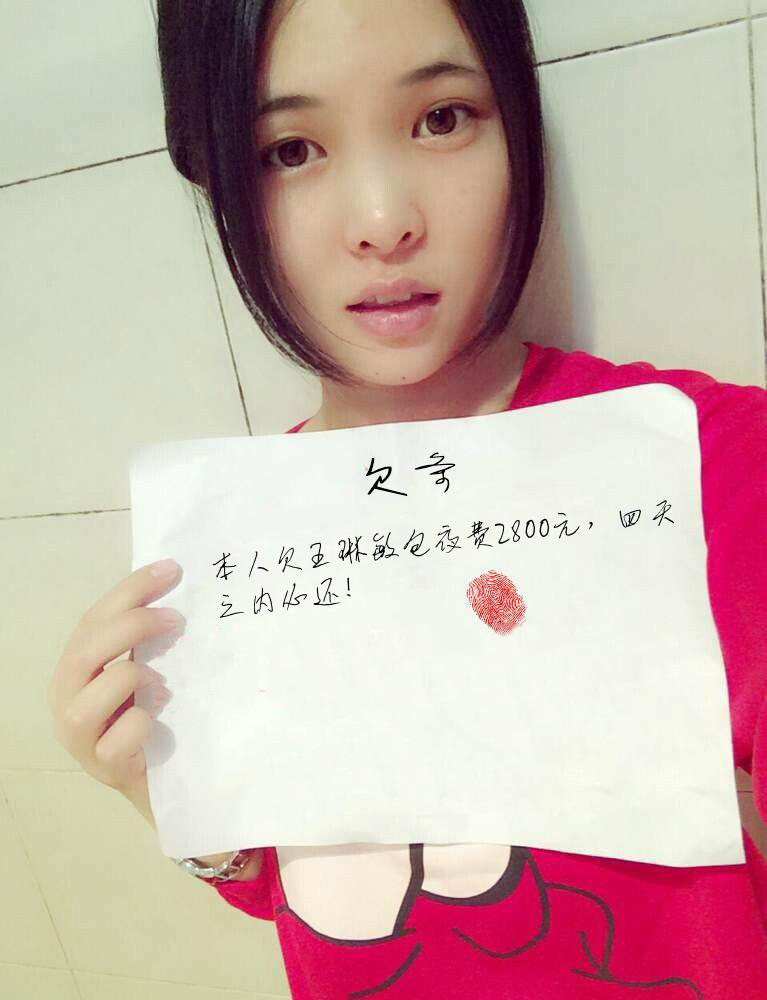 欠条
本人欠王琳敏包夜费2800元，四天
之内必还！